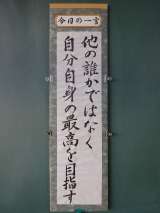 今日の一言
他の誰かではなく
自分自身の最高を目指す